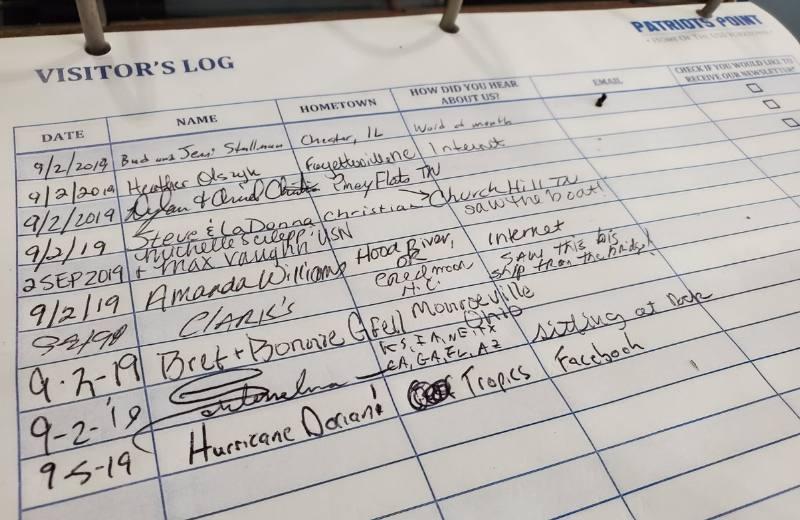 PATRIOTS POINT
HOME OF THE USS YORKTOWN
VISITOR'S LOG
DATE NAME HOMETOWN HOW DID YOU HEAR ABOUT US? EMAIL CHECK IF YOU WOULD LIKE TO RECEIVE OUR NEWSLETTER?
9/2/2019 Bud and Jenni Stallman Chester, IL Word of mouth
9/2/2019 Heather Fayetteville NC Internet
9/2/2019 Dylan & Piney Flats TN
9/2/19 Steve & LaDonna Christian Church Hill TN saw the boat!
2 SEP 2019 Michelle + Max Vaughn USN Hood River, OR Internet
9/2/19 Amanda Williams N.C. SAW THIS BIG SHIP from the bridge!
CLARK'S
9-2-19 Bret + Bonnie Gfell Monroeville Ohio
9-2-19 KS, IA, NE, TX CA, GA, FL, AZ sitting at
9-5-19 Hurricane Dorian! Tropics Facebook